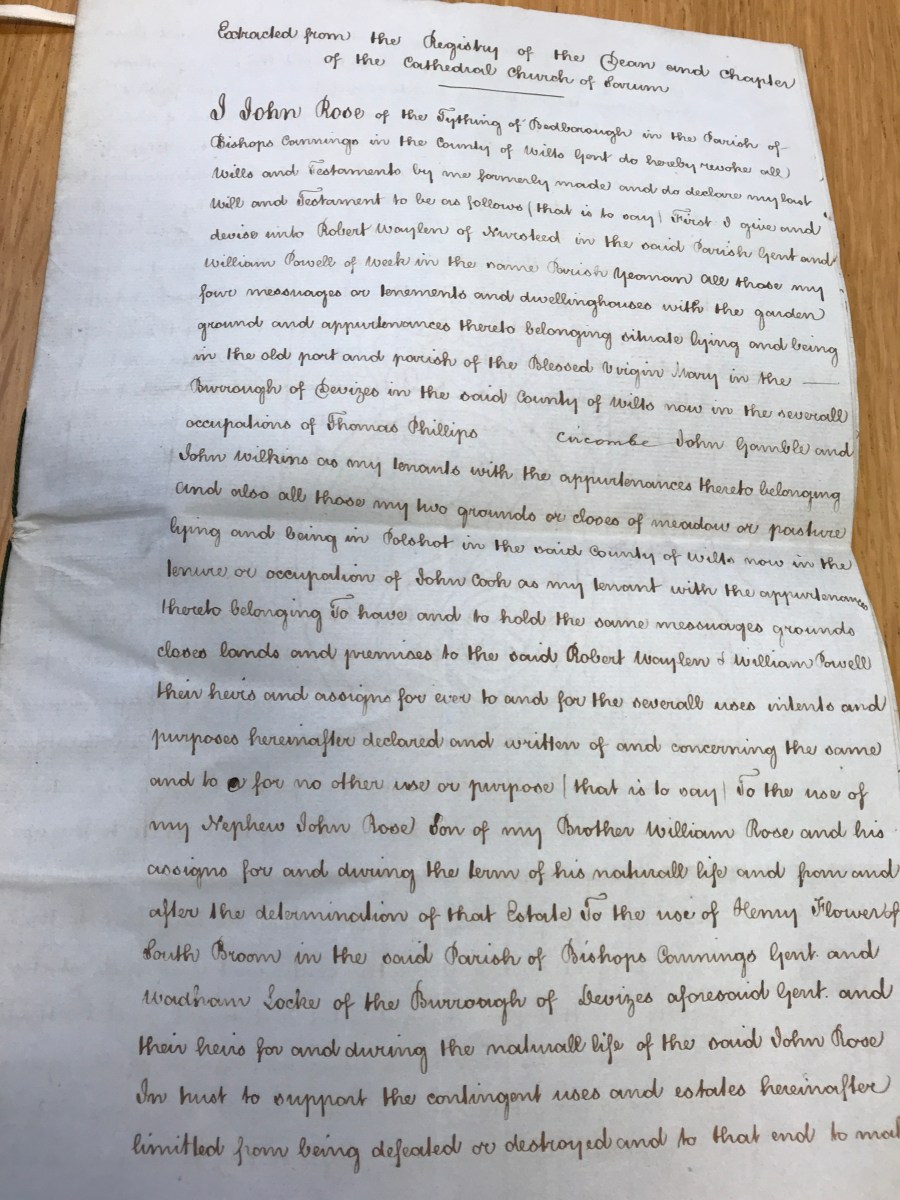 Extracted from the Registry of the Dean and Chapter
of the Cathedral Church of Sarum
I John Rose of the Tything of Bedborough in the Parish of
Bishops Cannings in the County of Wilts Gent do hereby revoke all
Wills and Testaments by me formerly made and do declare my last
Will and Testament to be as follows (that is to say) First I give and
devise unto Robert Waylen of Nursteed in the said Parish Gent and
William Powell of Week in the same Parish Yeoman all those my
four messuages or tenements and dwellinghouses with the garden
ground and appurtenances thereto belonging situate lying and being
in the old port and parish of the Blessed Virgin Mary in the
Burrough of Devizes in the said County of Wilts now in the severall
occupations of Thomas Phillips Cucombe John Gamble and
John Wilkins as my tenants with the appurtenances thereto belonging
and also all those my two grounds or closes of meadow or pasture
lying and being in Polshot in the said County of Wilts now in the
tenure or occupation of John Cook as my tenant with the appurtenances
thereto belonging To have and to hold the same messuages grounds
closes lands and premises to the said Robert Waylen & William Powell
their heirs and assigns for ever to and for the severall uses intents and
purposes hereinafter declared and written of and concerning the same
and to for no other use or purpose (that is to say) To the use of
my Nephew John Rose Son of my Brother William Rose and his
assigns for and during the term of his naturall life and from and
after the determination of that Estate To the use of Henry Flower of
South Broom in the said Parish of Bishops Cannings Gent. and
Wadham Locke of the Burrough of Devizes aforesaid Gent. and
their heirs for and during the naturall life of the said John Rose
In trust to support the contingent uses and estates hereinafter
limitted from being defeated or destroyed and to that end to mak